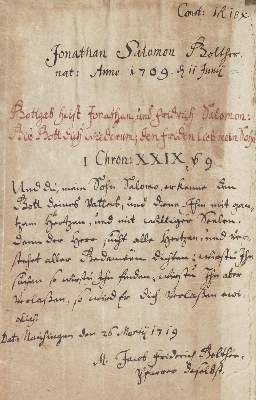 Jonathan Salomon
nat: Anno 1709. d 11 Junij
heist Jonathan und fridrich Salomon:
Gott dich wiederum; den frieden mein Sohn
1 Chron: XXIX, v 9.
Und du, mein Sohn Salomo, erkenne den
Gott deines Vatters, und diene Ihm mit gan,
tzem Hertzen, und mit williger Seelen.
Denn der Herr sucht alle Hertzen, und ver,
stehet aller Gedancken dichten; wirstu Ihn
suchen so wirstu ihn finden, wirstu Ihn aber
verlassen, so wird er dich verlassen ewi,
glich.
den 26 1719
M. Jacob friderich